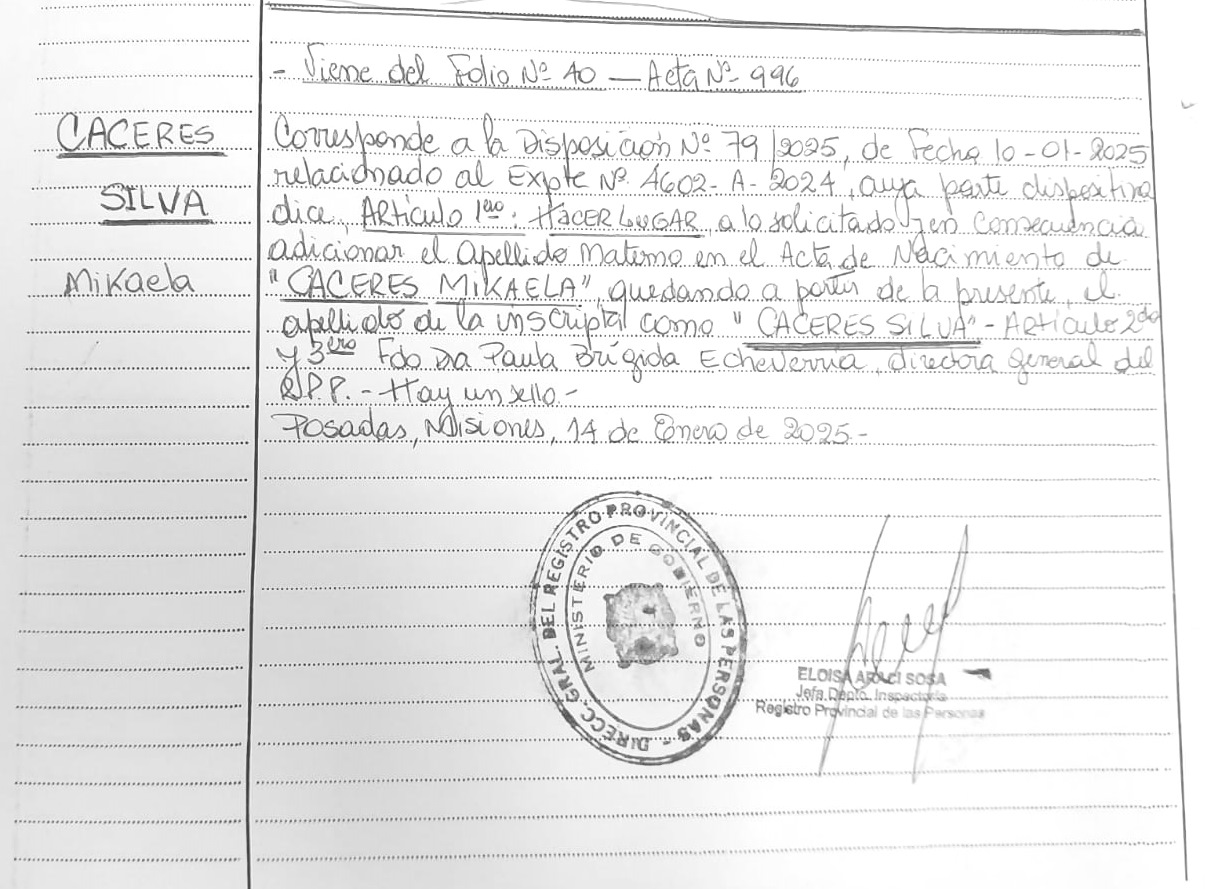 - Viene del Folio Nº 40 — Acta Nº 996
CACERES
SILVA
Mikaela
Corresponde a la Disposición Nº 79/2025, de Fecha 10-01-2025
relacionado al Expte Nº 4602-A-2024, cuya parte dispositiva
dice, Artículo 1ero: HACER LUGAR, a lo solicitado y en consecuencia
adicionar el apellido Materno en el Acta de Nacimiento de
"CACERES MIKAELA", quedando a partir de la presente, el
apellido de la inscripta como "CACERES SILVA" - Artículo 2do
y 3ero Fdo Dra Paula Brígida Echeverria, directora general del
R.P.P. - Hay un sello -
Posadas, Misiones, 14 de Enero de 2025-
DIRECC. GRAL. DEL REGISTRO PROVINCIAL DE LAS PERSONAS -
MINISTERIO DE GOBIERNO
ELOISA ARACI SOSA
Jefa Depto. Inspectoría
Registro Provincial de las Personas